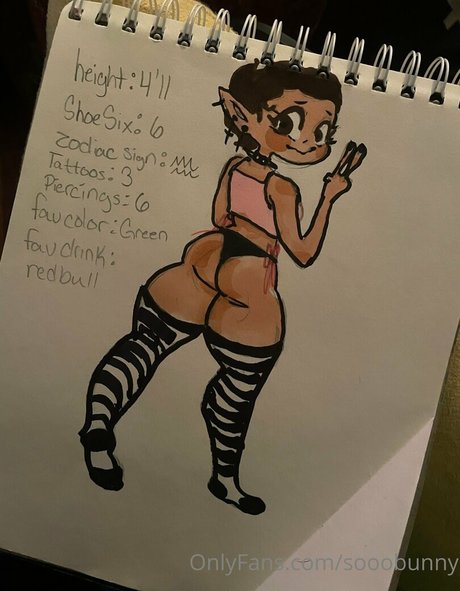 height: 4'11
Shoe Six: 6
Zodiac sign: ♒
Tattoos: 3
Piercings: 6
fav color: Green
fav drink:
redbull
OnlyFans.com/sooobunny